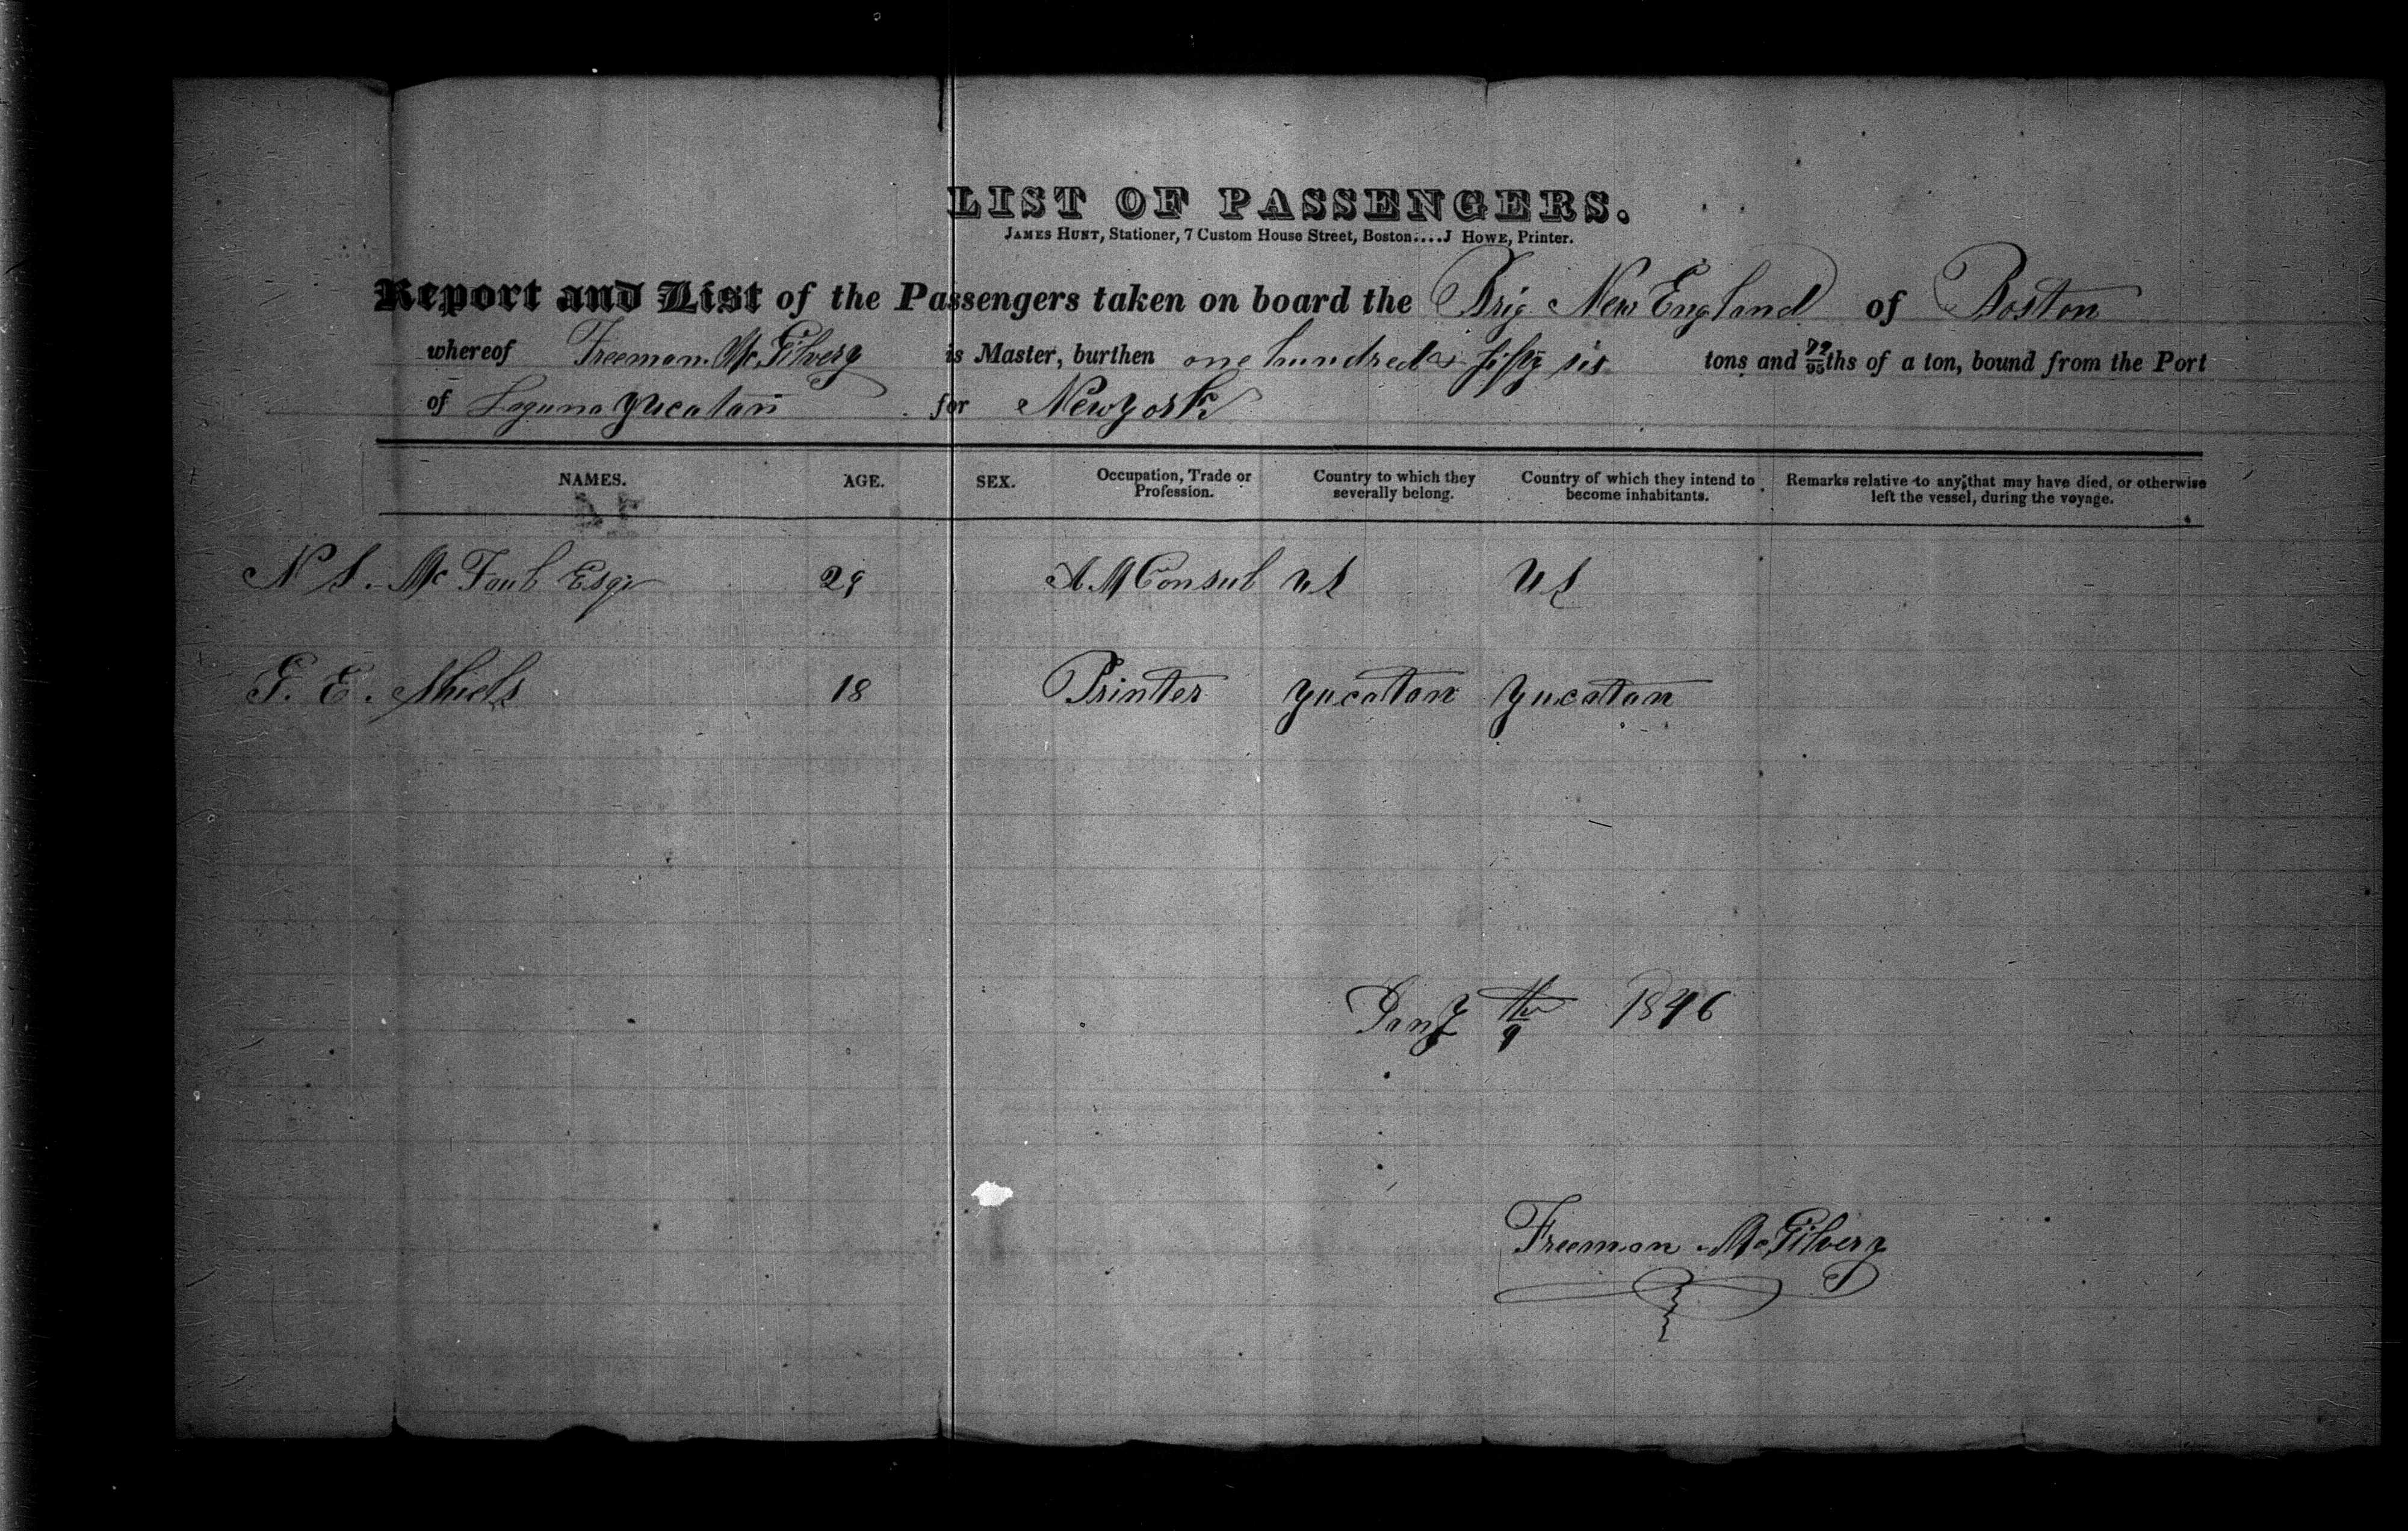 LIST OF PASSENGERS.
JAMES HUNT, Stationer, 7 Custom House Street, Boston....J HOWE, Printer.
Report and List of the Passengers taken on board the Brig New England of Boston
whereof Freeman McGilvery is Master, burthen one hundred & fifty six tons and 72/95ths of a ton, bound from the Port
of Laguna Yucatan for New York
NAMES. AGE. SEX. Occupation, Trade or Profession. Country to which they severally belong. Country of which they intend to become inhabitants. Remarks relative to any, that may have died, or otherwise left the vessel, during the voyage.
N S. Mc Esqr 29 A M Consul U S U S
G. E. Shiels 18 Printer Yucatan Yucatan
Jany 9th 1846
Freeman McGilvery